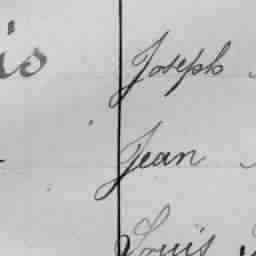 is Joseph
Jean
Louis